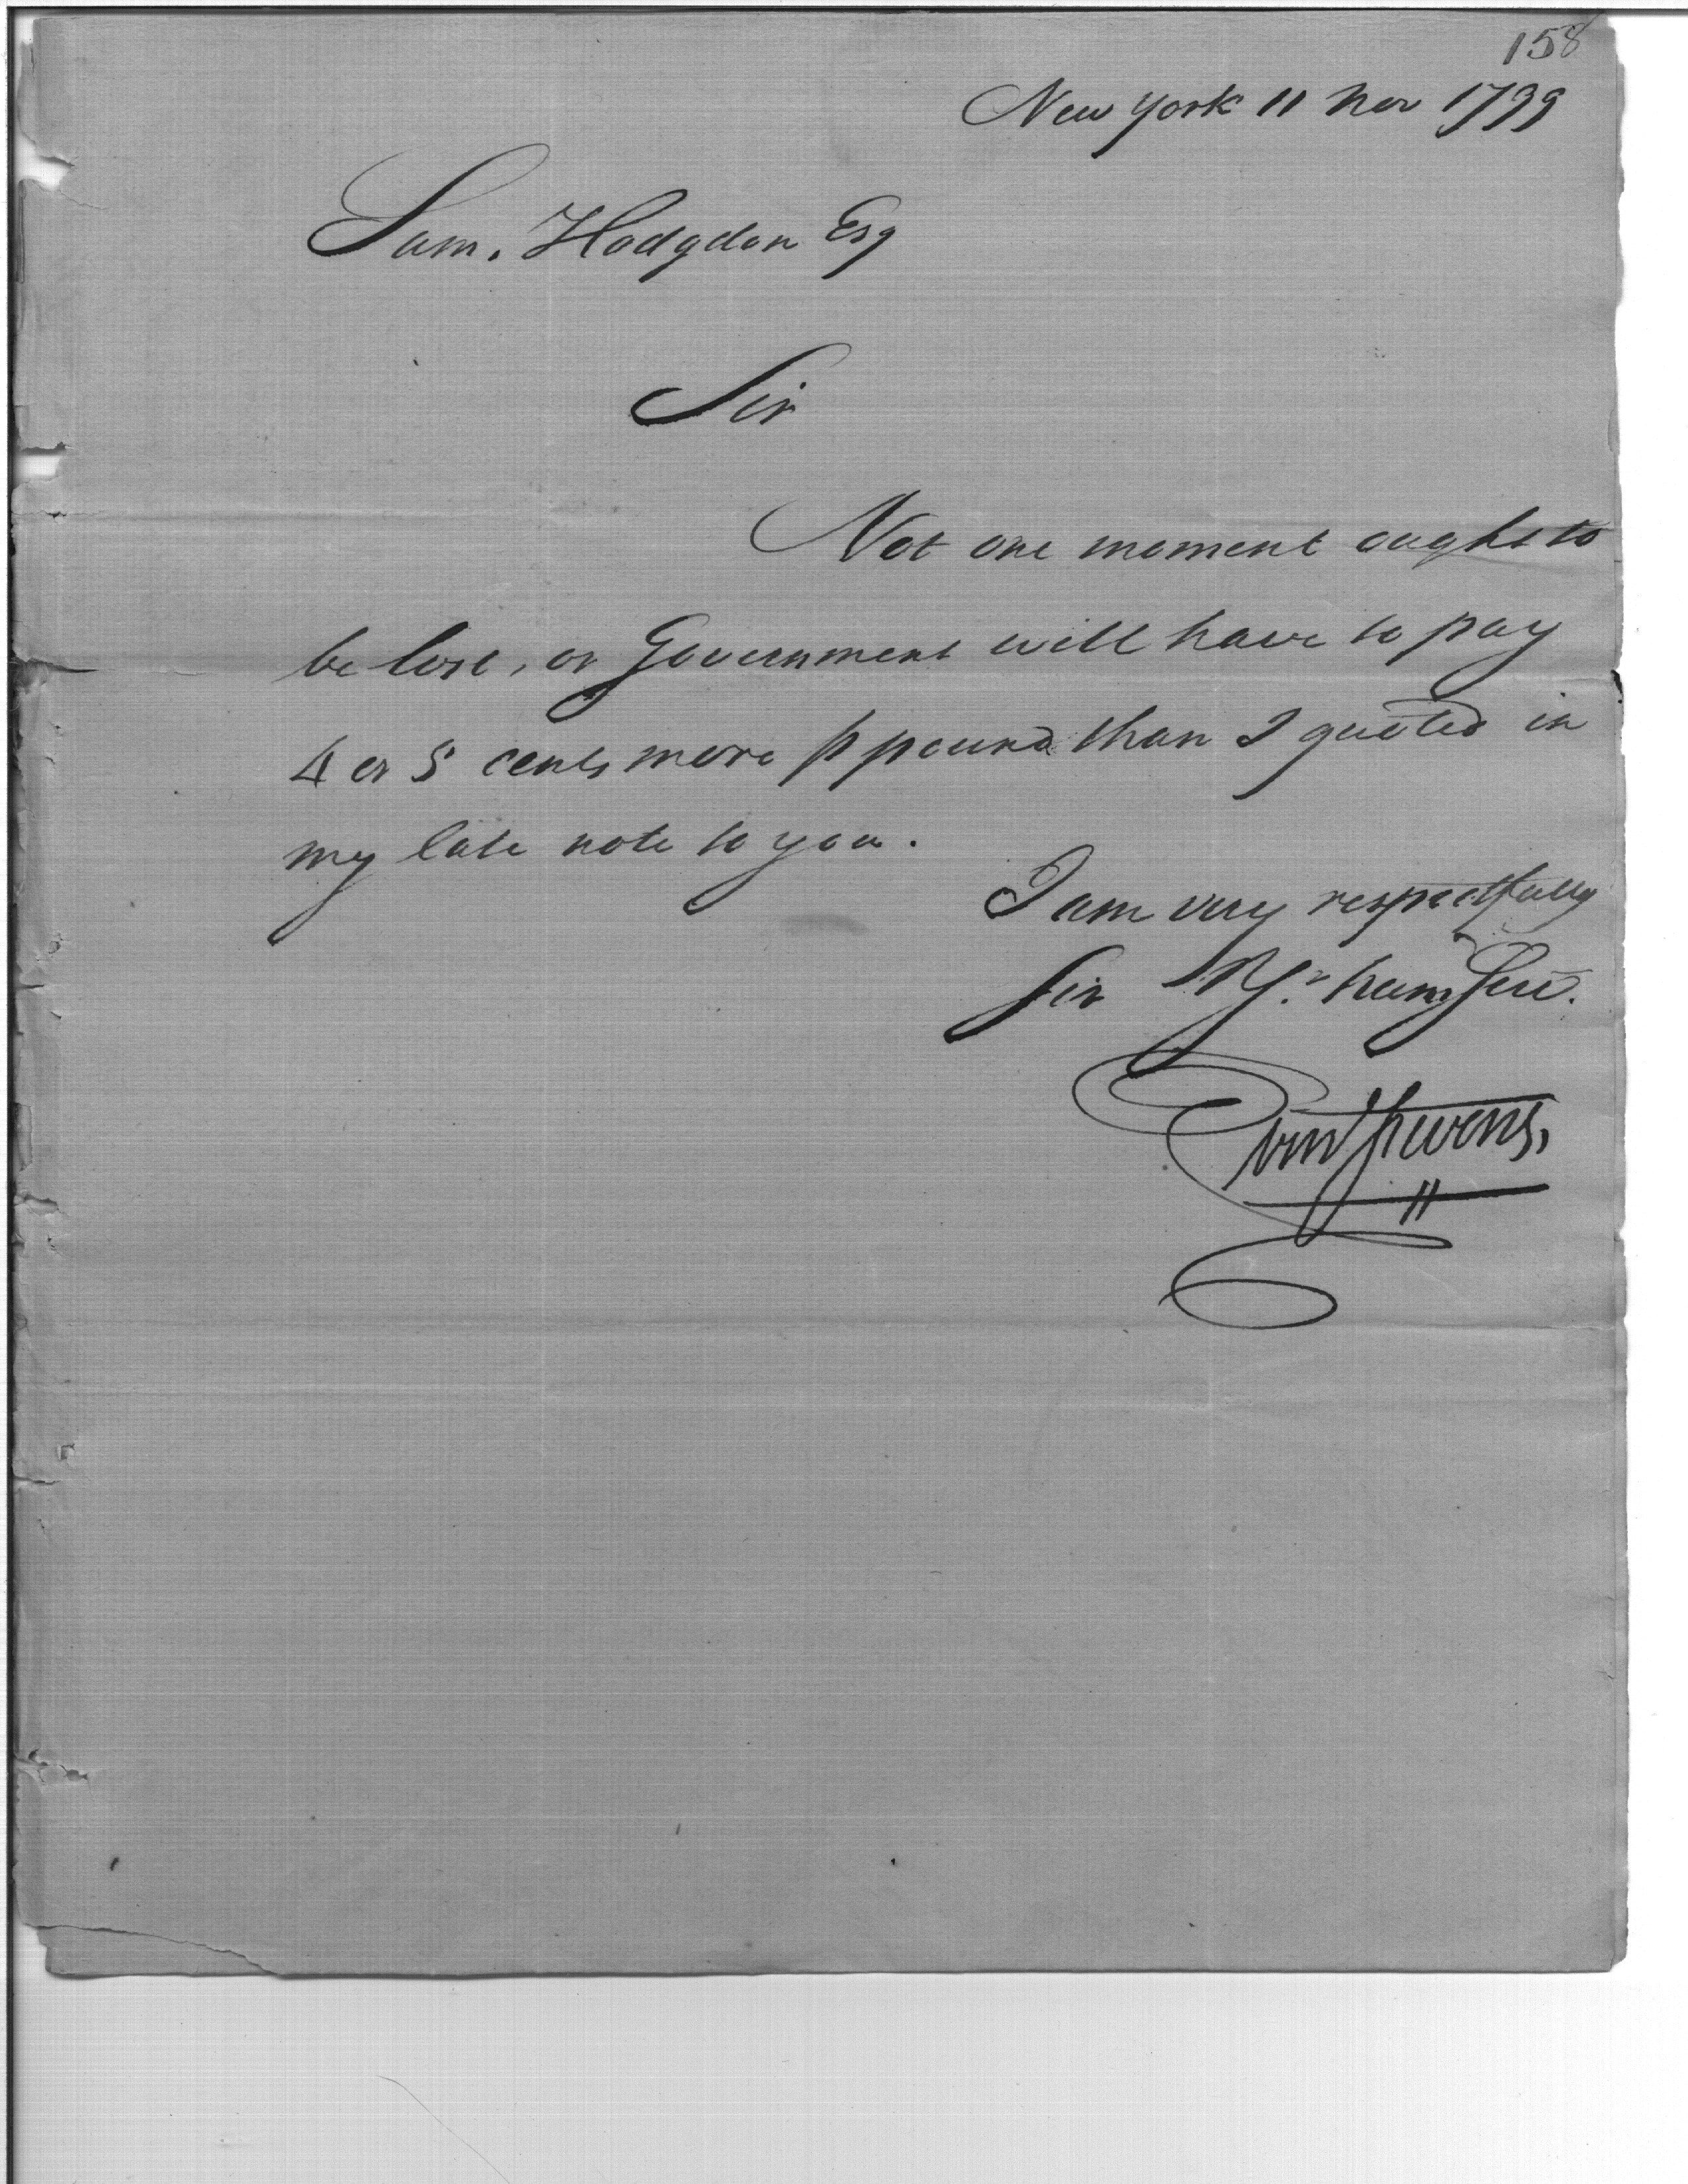 158
New York 11 Nov 1799
Sam. Hodgdon Esq
Sir
Not one moment ought to
be lost, or Government will have to pay
4 or 5 cents more p pound than I quoted in
my late note to you.
I am very respectfully
Sir Yr. hum Serv.
Stevens,